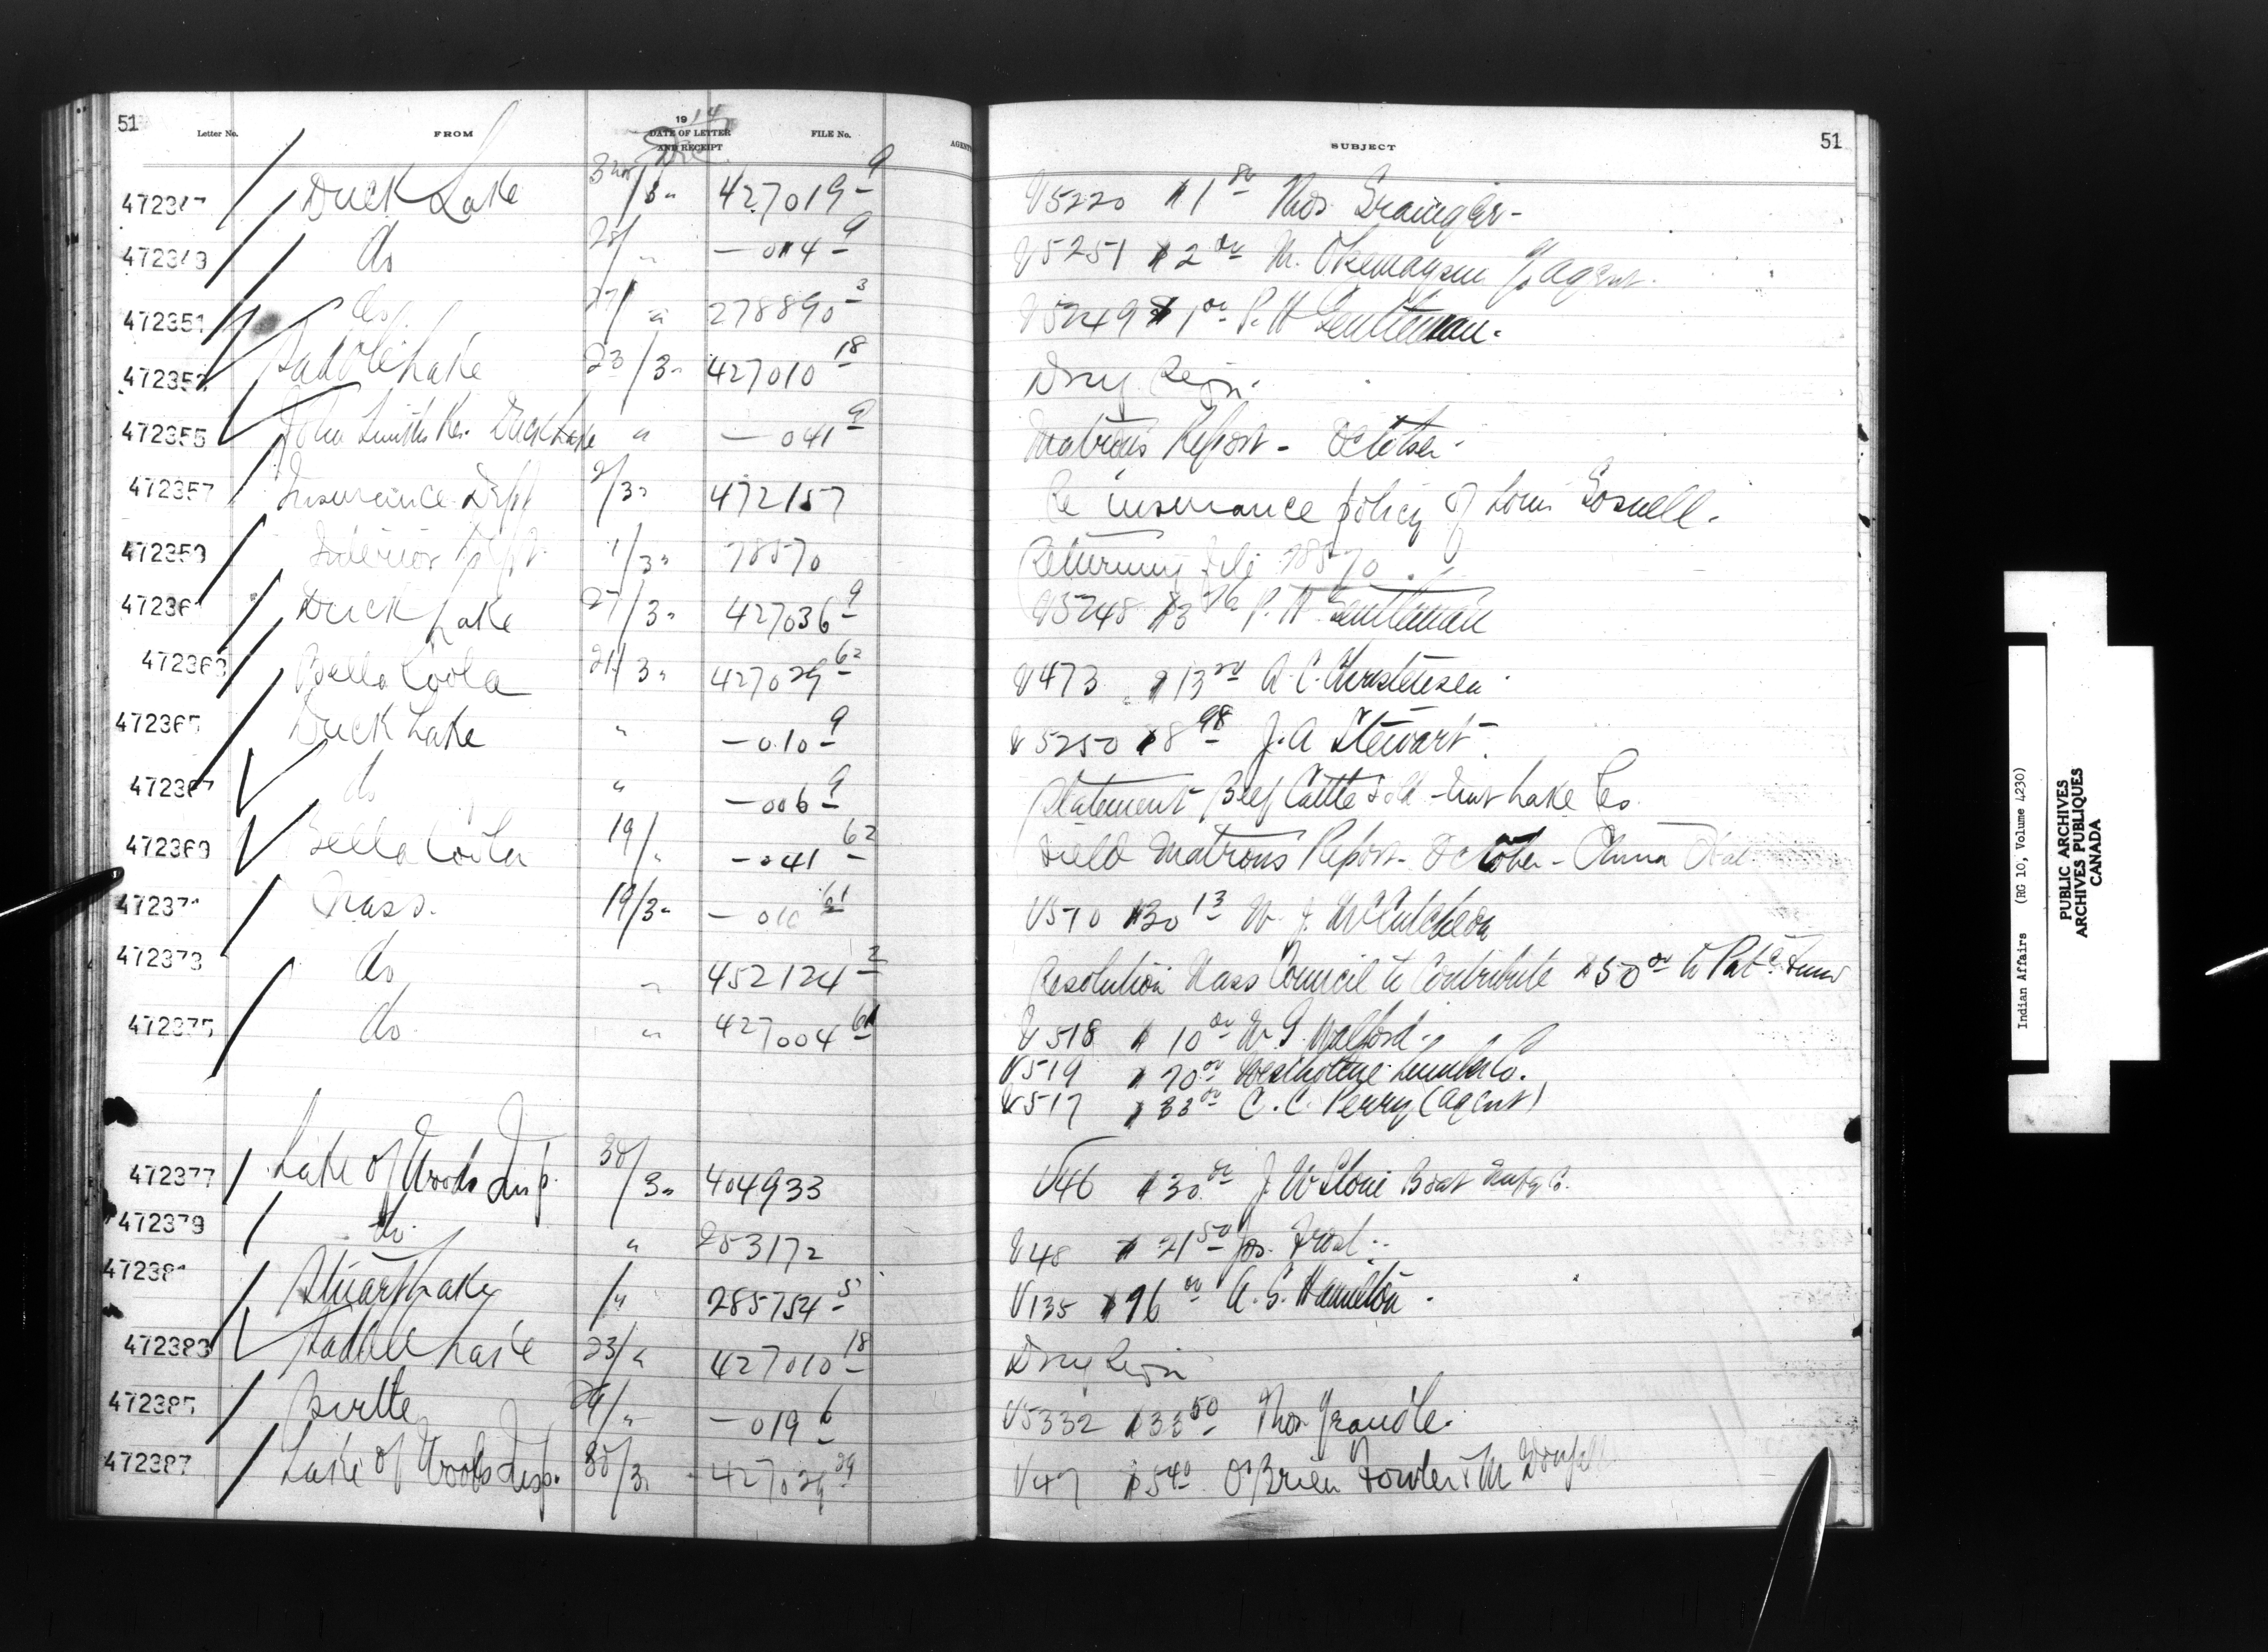 51
Letter No. FROM 1914 Dec. DATE OF LETTER AND RECEIPT FILE No. AGENT SUBJECT 51
472347 Duck Lake 3 Nov/3" 427019-9 V5220 $1 Thos
472349 do 28/" —014-9 V5251 $2.00 agent.
472351 do 27/" 278890-3 V5249 $1.00 P. H Gentleman.
472353 Saddle Lake 23/3" 427010-18 Drug Reqn.
472355 John Smiths Res. Duck Lake " —041-9 Matron's Report - October.
472357 Insurance Dept 2/3" 472157 Re insurance policy of Louis Gosnell.
472359 Interior Dept. 1/3" 78570 Returning file 78570.
472361 Duck Lake 27/3" 427036-9 V5248 $3 P. H Gentleman
472363 Bella Coola 21/3" 427029-62 V473 $13 A. C. Christensen
472365 Duck Lake " —010-9 V5250 $8.98 J. A Stewart.
472367 do " —006-9 Statement Beef Cattle sold - Nut Lake Res.
472369 Bella Coola 19/" —041-62 Field Matrons Report - October -
472371 Nass. 19/3" —010-61 V510 $30.13 W. J. McCutcheon
472373 do " 452124-2 Resolution Nass Council to Contribute $50.00 to Patc. Fund
472375 do " 427004-61 V518 $10.00 W. G. Walford.
V519 $70.00 Westholme Lumber Co.
V517 $33.00 C. C. Perry (agent)
472377 Lake of Woods Insp. 30/3" 404933 V46 $30.00 J. W Stone Boat Manfg Co.
472379 do. " 253172 V48 $21.50 Jos. Frost.
472381 Stuart Lake /" 285754-5 V135 $96.00 A. S. Hamilton.
472383 Saddle Lake 23/" 427010-18 Drug Reqn
472385 Birtle 29/" —019-6 V5332 $33.50 Thos
472387 Lake of Woods Insp. 30/3" 427029-29 V47 $5.40 O'Brien Fowler & McDougall
Indian Affairs (RG 10, Volume 4230)
PUBLIC ARCHIVES
ARCHIVES PUBLIQUES
CANADA